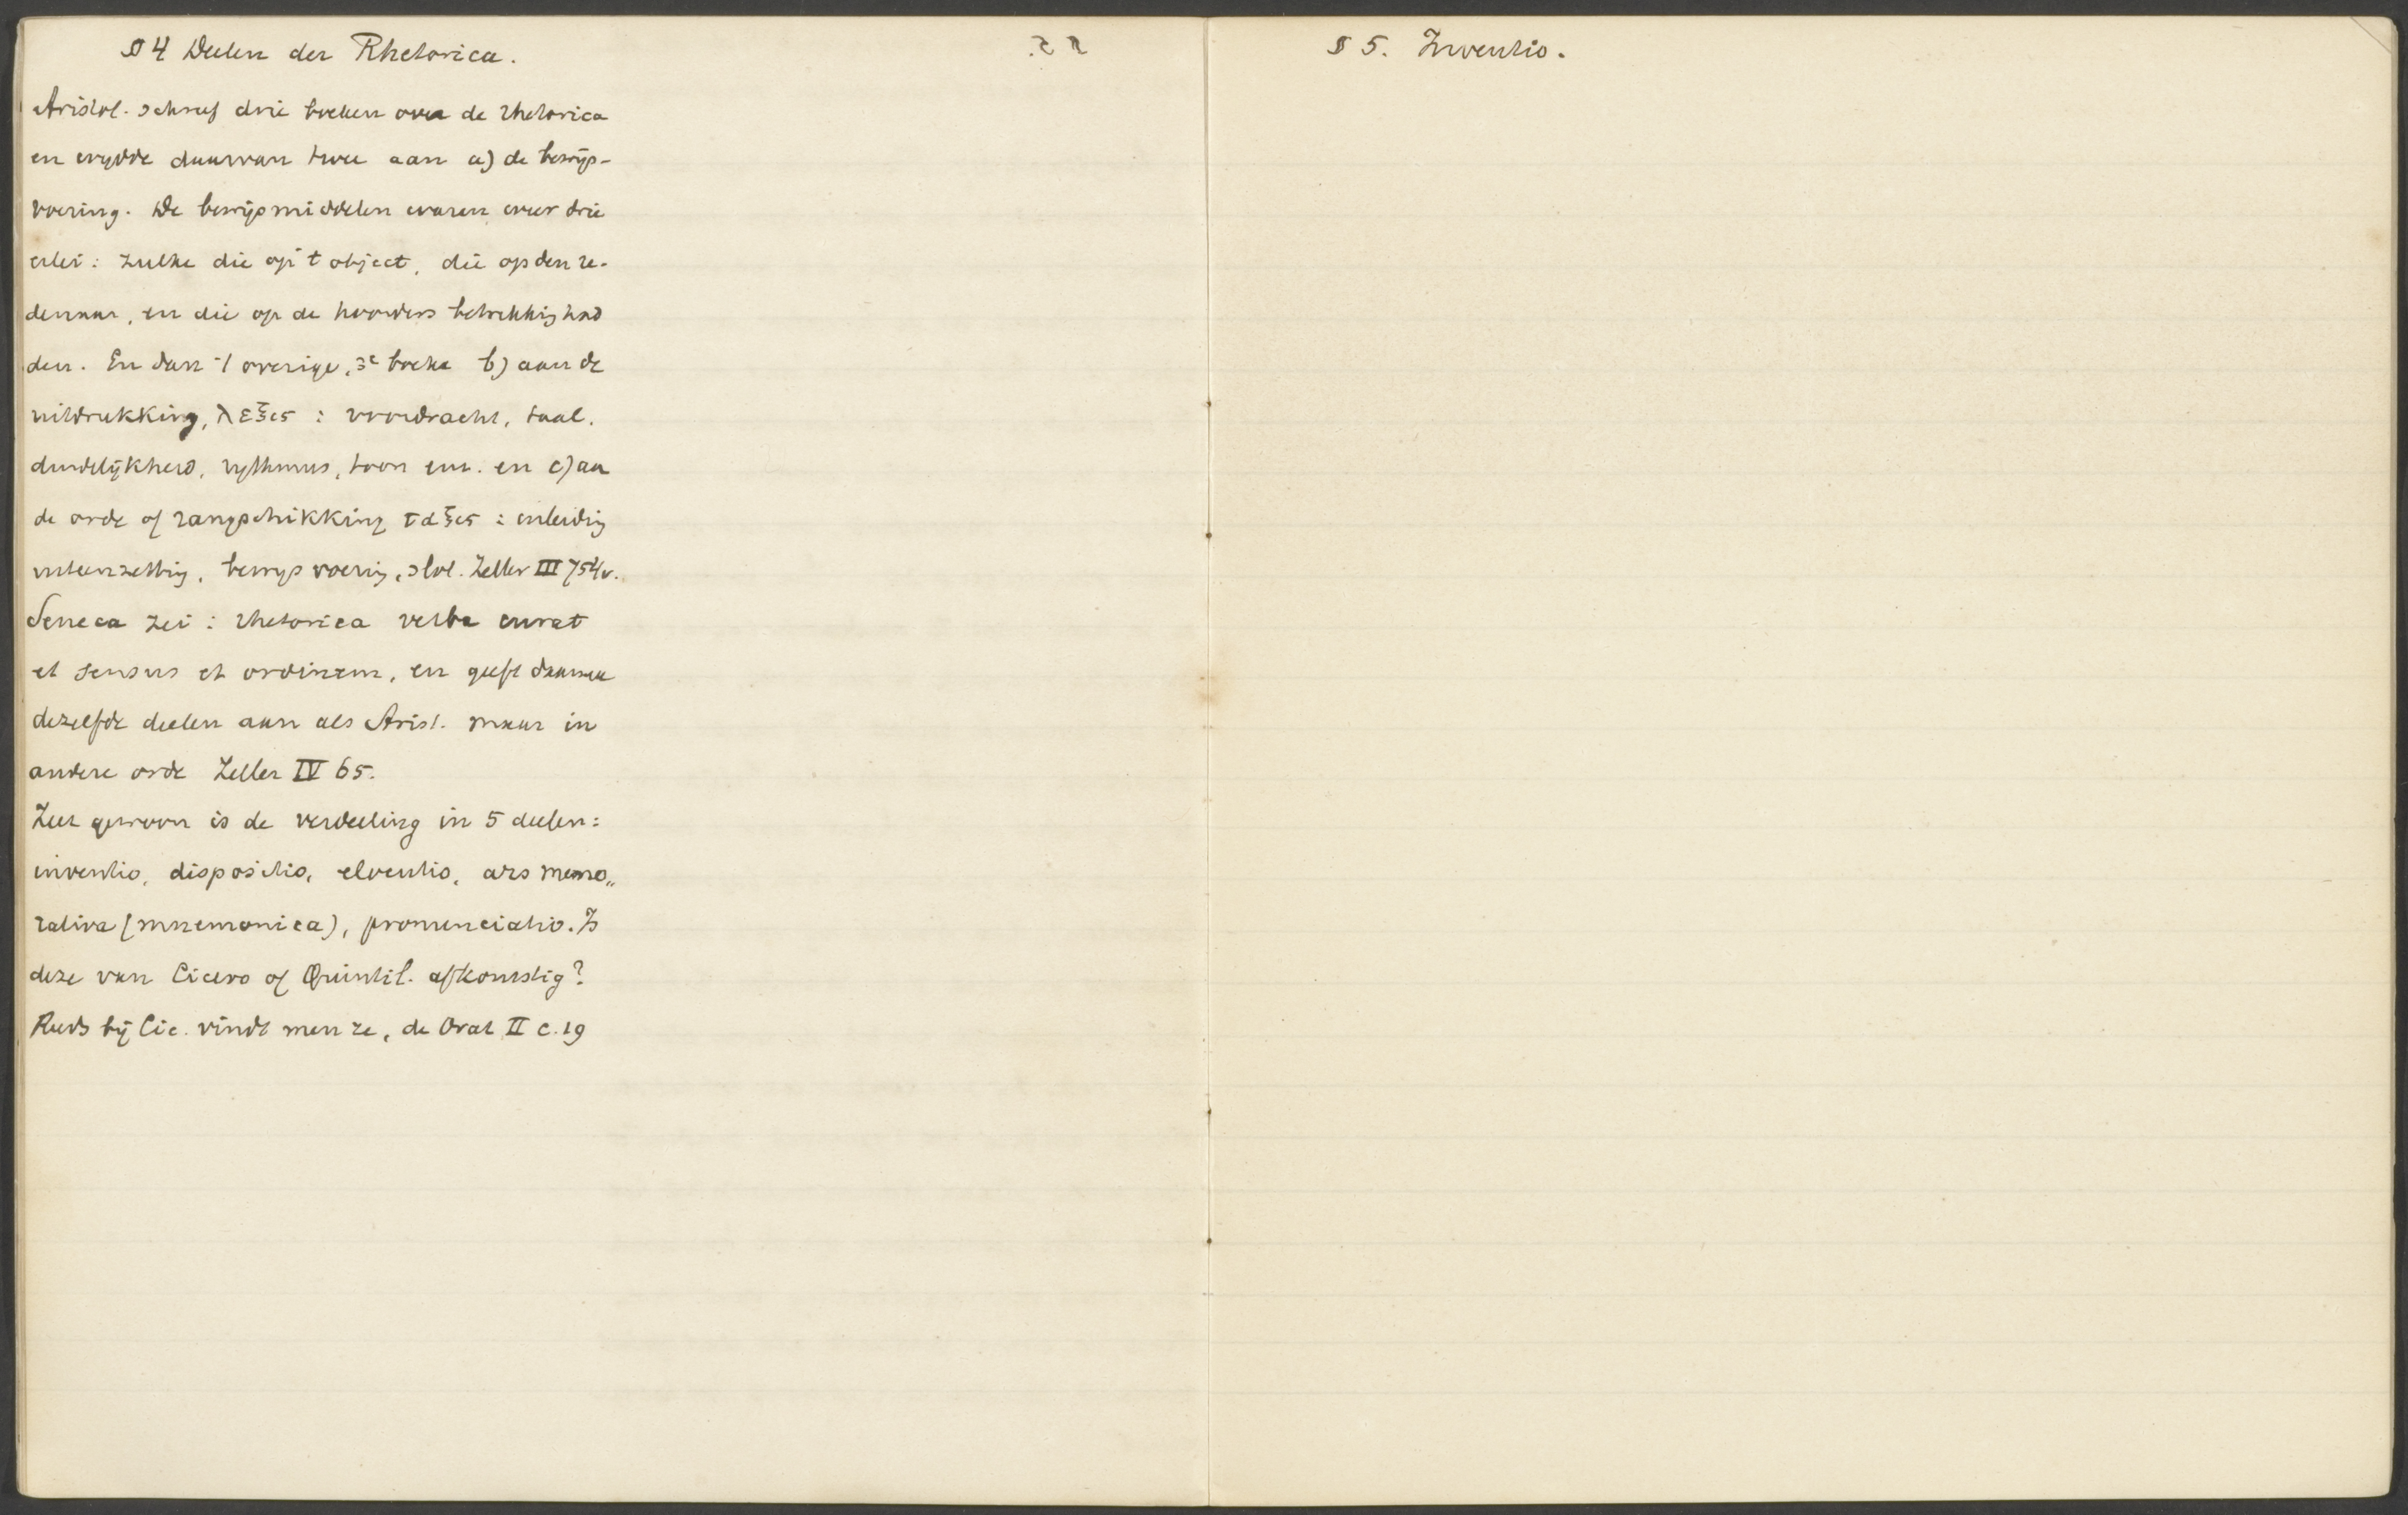 § 4 Deelen der Rhetorica.
Aristot. schreef drie boeken over de rhetorica
en wydde daarvan twee aan a) de bewijs-
voering. De bewijsmiddelen waren weer drie
erlei: zulke die op 't object, die op den re-
denaar, en die op de hoorders betrekking had
den. En dan 't overige, 3e boeke b) aan de
uitdrukking, λεξις : voordracht, taal.
duidelijkheid, rythmus, toon enz. en c) aan
de orde of rangschikking ταξις : inleiding
uiteenzetting, bewijsvoering, slot. Zeller III 754v.
Seneca zei : rhetorica verba curat
et sensus et ordinem, en geeft daarmee
dezelfde deelen aan als Arist. maar in
andere orde Zeller IV 65.
Zeer gewoon is de verdeeling in 5 deelen:
inventio, dispositio, elocutio, ars memo„
rativa (mnemonica), pronunciatio. Is
deze van Cicero of Quintil. afkomstig?
Reeds bij Cic. vindt men ze, de Orat II c. 19
§ 5. Inventio.